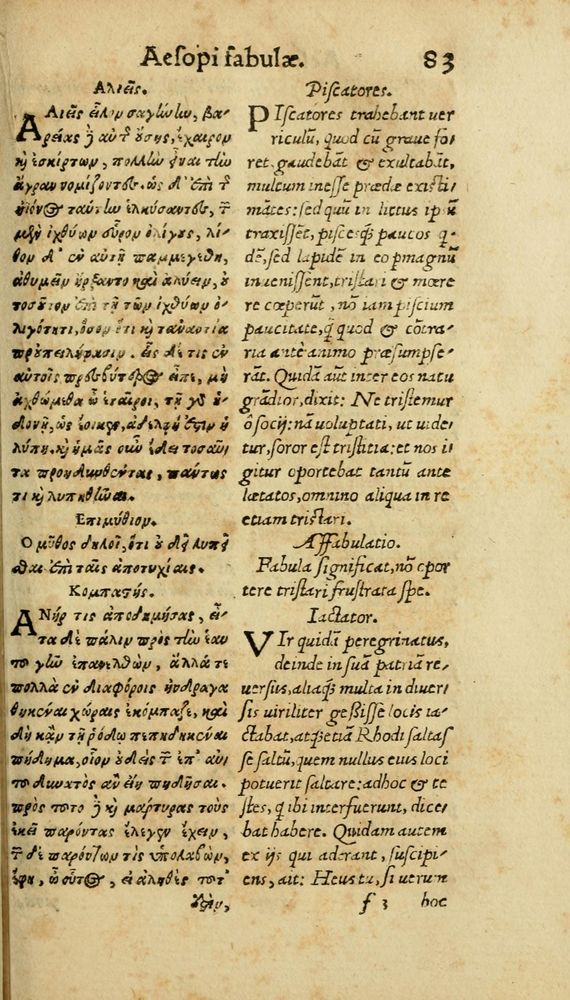 Aesopi fabulæ. 83
Ἁλιεῖς.
Ἁλιεῖς εἷλκον σαγήνην, βα⸗
ρείας δὲ αὐτῆς οὔσης, ἔχαιρον
καὶ ἐσκίρτων, πολλὴν εἶναι τὴν
ἄγραν νομίζοντες. ὡς δ' ἐπὶ τῆς
ἠϊόνος ταύτην ἑλκύσαντες, τῶν
μὲν ἰχθύων εὗρον ὀλίγους, λί⸗
θον δ' ἐν αὐτῇ παμμεγέθη,
ἀθυμεῖν ἤρξαντο καὶ ἀλύειν, οὐ
τοσοῦτον ἐπὶ τῇ τῶν ἰχθύων ὀ⸗
λιγότητι, ὅσον ὅτι καὶ τἀναντία
προὑπειλήφασιν. εἷς δέ τις ἐν
αὐτοῖς πρεσβύτερος εἶπε, μὴ
ἀχθώμεθα ὦ ἑταῖροι, τῇ γὰρ ἡ⸗
δονῇ, ὡς ἔοικεν, ἀδελφή ἐστιν ἡ
λύπη. καὶ ἡμᾶς οὖν ἔδει τοσαῦ⸗
τα προησθέντας, πάντως
τι καὶ λυπηθῆναι.
Ἐπιμύθιον.
Ὁ μῦθος δηλοῖ, ὅτι οὐ δεῖ λυπεῖ
σθαι ἐπὶ ταῖς ἀποτυχίαις.
Κομπαστής.
Ἀνήρ τις ἀποδημήσας, εἶ⸗
τα δὲ πάλιν πρὸς τὴν ἑαυ
τοῦ γῆν ἐπανελθὼν, ἄλλά τε
πολλὰ ἐν διαφόροις ἠνδραγα
θηκέναι χώραις ἐκόμπαζε, καὶ
δὴ κἂν τῇ ῥόδῳ πεπηδηκέναι
πήδημα, οἷον οὐδεὶς τῶν ἐπ' αὐ⸗
τοῦ δυνατὸς ἂν εἴη πηδῆσαι.
πρὸς τοῦτο δὲ καὶ μάρτυρας τοὺς
ἐκεῖ παρόντας ἔλεγεν ἔχειν,
τῶν δὲ παρόντων τὶς ὑπολαβὼν,
ἔφη, ὦ οὗτος, εἰ ἀληθὲς τοῦτ'
ἔστιν,
Piscatores.
PIscatores trahebant uer
riculũ, quod cũ graue fo⸗
ret, gaudebãt & exultabãt,
multum inesse prædæ existi⸗
mãtes: sed quũ in littus ipsũ
traxissẽt, pisces q̃ paucos q⸗
dẽ, sed lapidẽ in eo pmagnũ
inuenissent, tristari & mœre
re cœperũt, nõ iam piscium
paucitate, q̃ quod & cõtra⸗
ria antè animo præsumpse⸗
rãt. Quidã aũt inter eos natu
grãdior, dixit: Ne tristemur
ô socij: nã uoluptati, ut uide⸗
tur, soror est tristitia: et nos i⸗
gitur oportebat tantũ ante
lætatos, omnino aliqua in re
etiam tristari.
Affabulatio.
Fabula significat, nõ opor
tere tristari frustrata spe.
Iactator.
VIr quidã peregrinatus,
deinde in suã patriã re⸗
uersus, aliaq́; multa in diuer⸗
sis uiriliter geßisse locis ia⸗
ctabat, atq; etiam Rhodi saltas
se saltũ, quem nullus eius loci
potuerit saltare: ad hoc & te
stes, q ibi interfuerunt, dice⸗
bat habere. Quidam autem
ex ijs qui aderant, suscipi⸗
ens, ait: Heus tu, si uerum
f 3 hoc